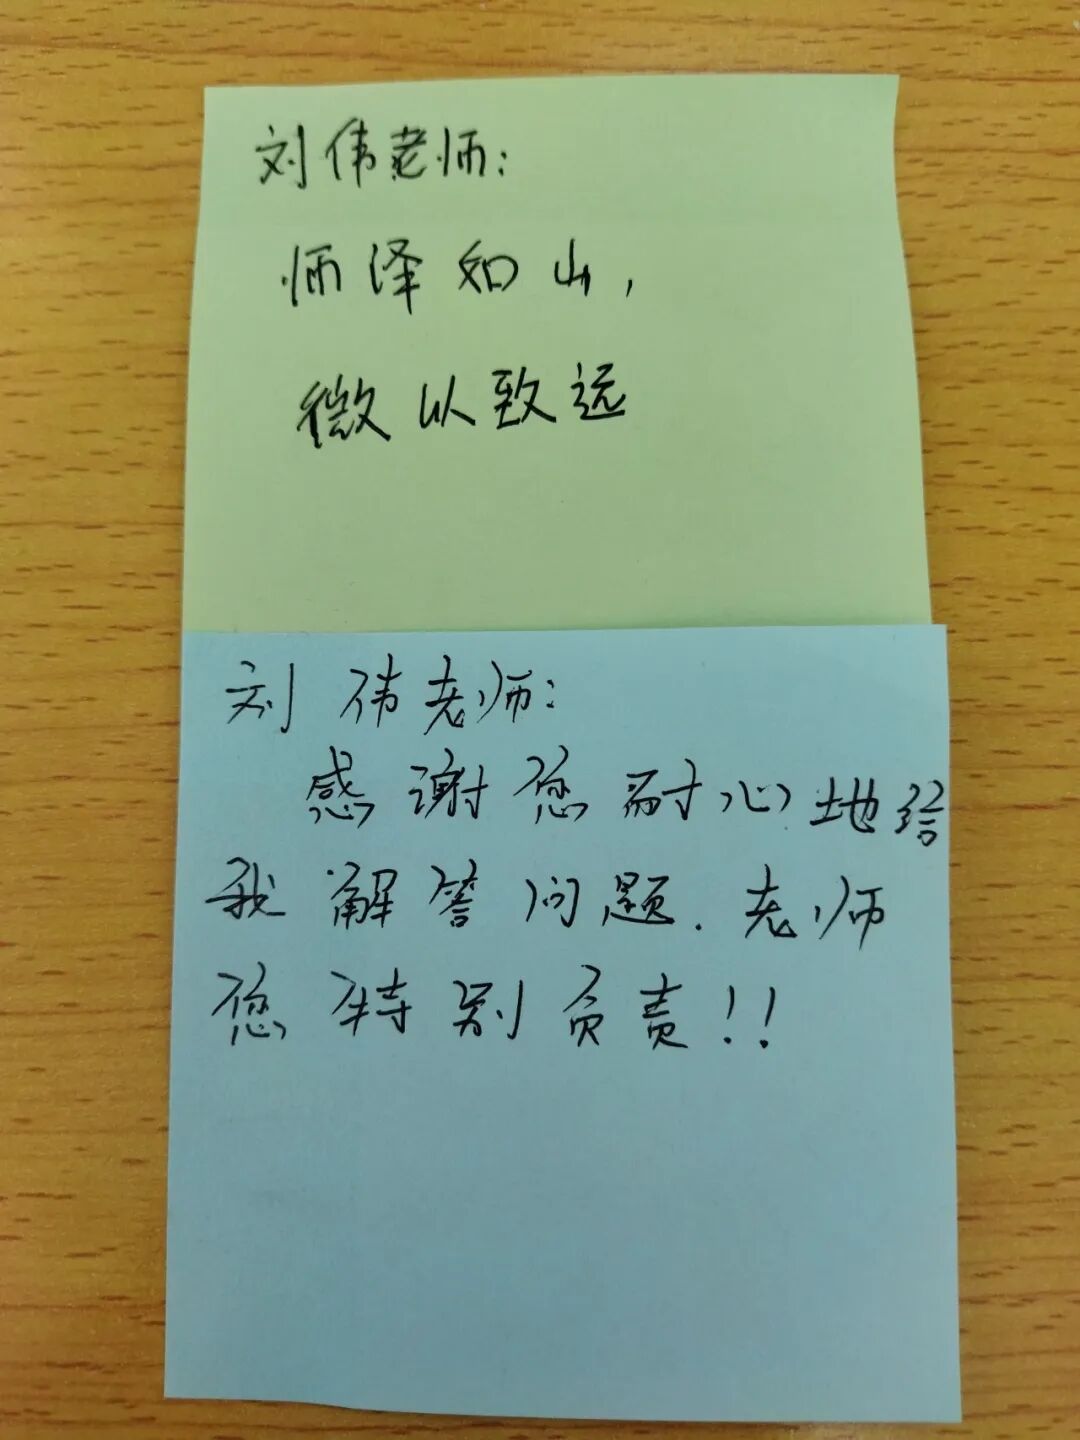 刘伟老师:
师泽如山,
微以致远
刘伟老师:
感谢您耐心地给
我解答问题.老师
您特别负责!!